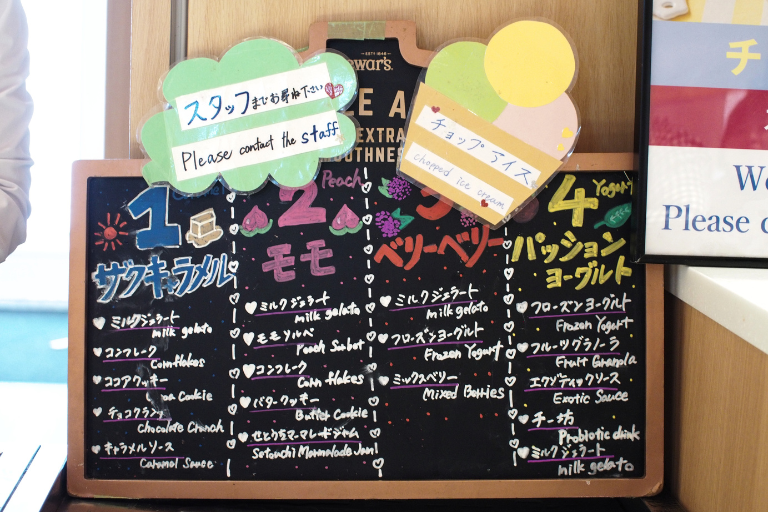 スタッフまでお尋ね下さい
Please contact the staff
チョップドアイス
chopped ice cream
war's.
E A
EXTRA
OOTHNES
1
ザクキャラメル
ミルクジェラート
milk gelato
コンフレーク
Cornflakes
ココアクッキー
oa Cookie
チョコクランチ
Chocolate Crunch
キャラメルソース
Caramel Sauce
2
Peach
モモ
ミルクジェラート
milk gelato
モモソルベ
Peach Sorbet
コンフレーク
Corn flakes
バタークッキー
Butter Cookie
せとうちマーマレードジャム
Setouchi Marmalade Jam
3
ベリーベリー
ミルクジェラート
milk gelato
フローズンヨーグルト
Frozen Yogurt
ミックスベリー
Mixed Berries
4
Yogurt
パッション
ヨーグルト
フローズンヨーグルト
Frozen Yogurt
フルーツグラノーラ
Fruit Granola
エクゾティックソース
Exotic Sauce
チー坊
Probiotic drink
ミルクジェラート
milk gelato
チ
We
Please c